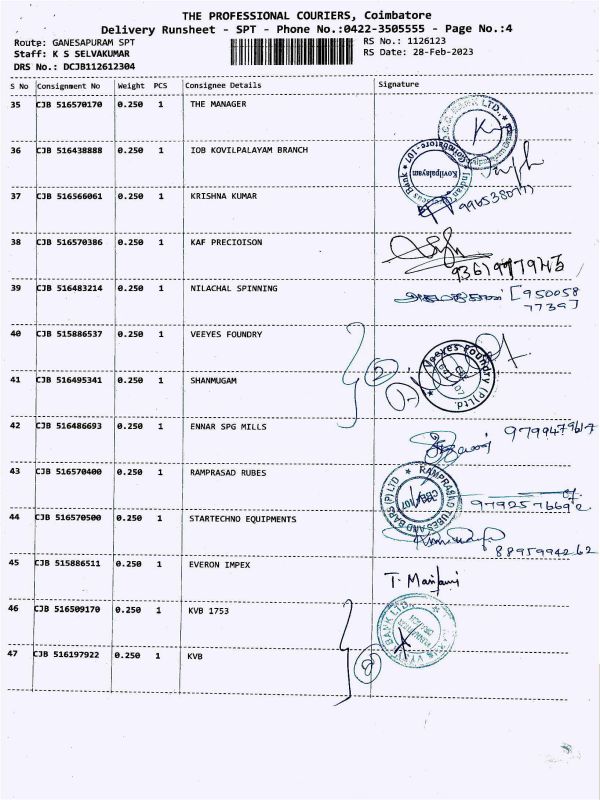 THE PROFESSIONAL COURIERS, Coimbatore
Delivery Runsheet - SPT - Phone No.:0422-3505555 - Page No.:4
Route: GANESAPURAM SPT RS No.: 1126123
Staff: K S SELVAKUMAR RS Date: 28-Feb-2023
DRS No.: DCJB112612304
S No Consignment No Weight PCS Consignee Details Signature
35 CJB 516570170 0.250 1 THE MANAGER
36 CJB 516438888 0.250 1 IOB KOVILPALAYAM BRANCH
Kovilpalayam
37 CJB 516566061 0.250 1 KRISHNA KUMAR
38 CJB 516570386 0.250 1 KAF PRECIOISON
39 CJB 516483214 0.250 1 NILACHAL SPINNING
[950058
7739]
40 CJB 515886537 0.250 1 VEEYES FOUNDRY
Veeyes Foundry (P) Ltd.
2
41 CJB 516495341 0.250 1 SHANMUGAM
42 CJB 516486693 0.250 1 ENNAR SPG MILLS
43 CJB 516570400 0.250 1 RAMPRASAD RUBES
RAMPRASAD TUBES AND BARS (P) LTD
44 CJB 516570500 0.250 1 STARTECHNO EQUIPMENTS
8895994262
45 CJB 515886511 0.250 1 EVERON IMPEX
46 CJB 516509170 0.250 1 KVB 1753
47 CJB 516197922 0.250 1 KVB